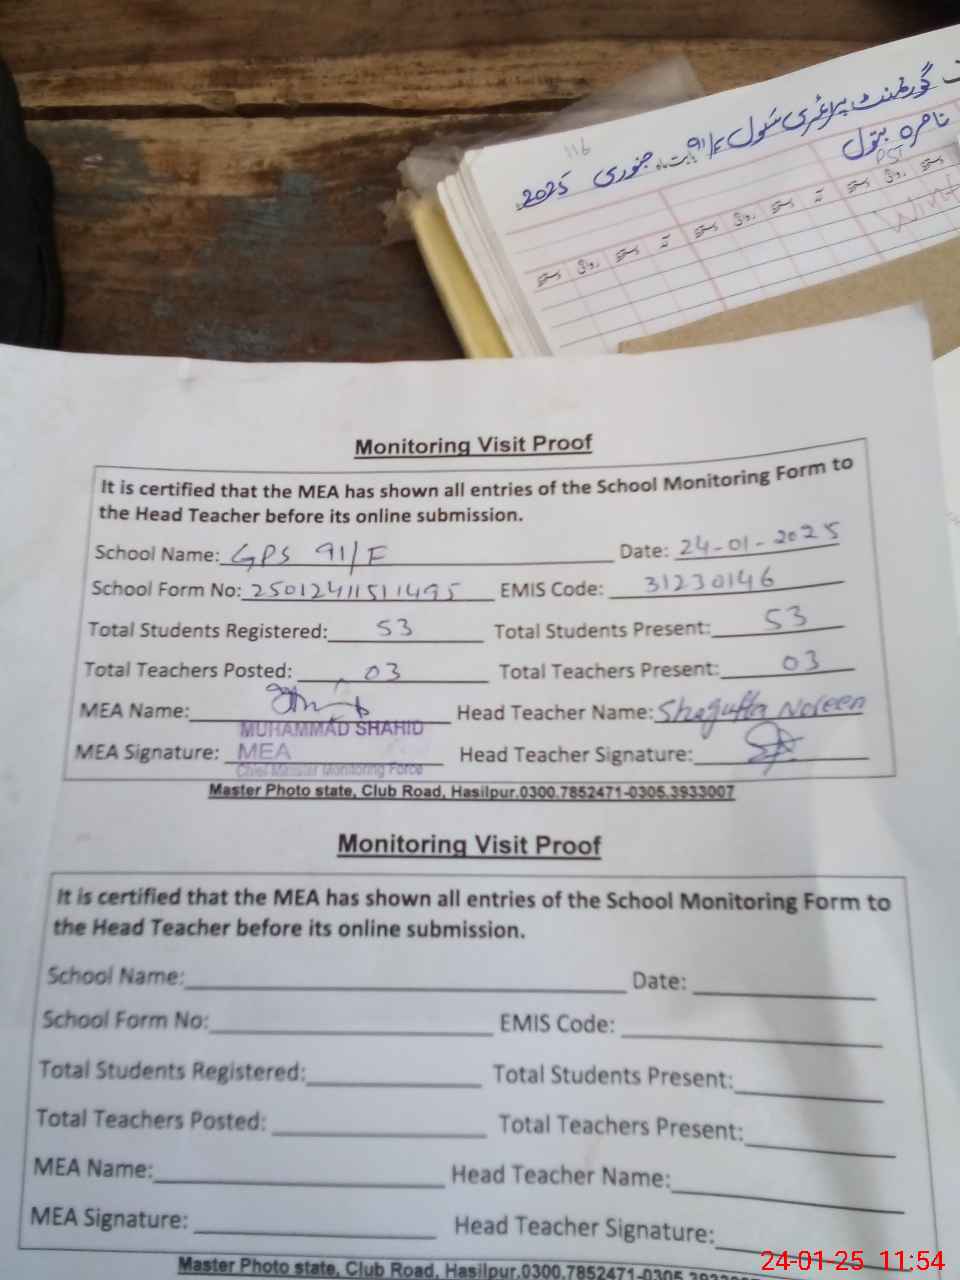 116
گورنمنٹ پرائمری سکول 91/F بابت ماہ جنوری 2025
ناصرہ بتول
PST
Monitoring Visit Proof
It is certified that the MEA has shown all entries of the School Monitoring Form to
the Head Teacher before its online submission.
School Name: GPS 91/F Date: 24-01-2025
School Form No: 25012411511495 EMIS Code: 31230146
Total Students Registered: 53 Total Students Present: 53
Total Teachers Posted: 03 Total Teachers Present: 03
MEA Name: Head Teacher Name: Shagufta Noreen
MUHAMMAD SHAHID
MEA Signature: MEA Head Teacher Signature:
Chief Minister Monitoring Force
Master Photo state, Club Road, Hasilpur.0300.7852471-0305.3933007
Monitoring Visit Proof
It is certified that the MEA has shown all entries of the School Monitoring Form to
the Head Teacher before its online submission.
School Name: Date:
School Form No: EMIS Code:
Total Students Registered: Total Students Present:
Total Teachers Posted: Total Teachers Present:
MEA Name: Head Teacher Name:
MEA Signature: Head Teacher Signature:
Master Photo state, Club Road, Hasilpur.0300.7852471-0305
24-01-25 11:54